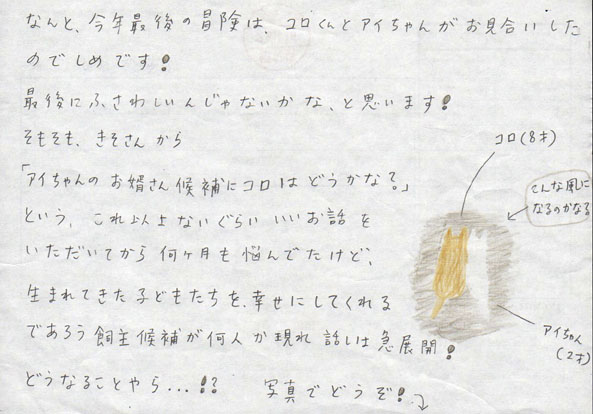 なんと、今年最後の冒険は、コロくんとアイちゃんがお見合いした
のでしめです!
最後にふさわしいんじゃないかな、と思います!
そもそも、きそさんから
「アイちゃんのお婿さん候補にコロはどうかな?」
という、これ以上ないぐらいいいお話を
いただいてから何ヶ月も悩んでたけど、
生まれてきた子どもたちを、幸せにしてくれる
であろう飼主候補が何人か現れ話しは急展開!
どうなることやら...!? 写真でどうぞ!
コロ(8才)
こんな風に
なるのかなぁ
アイちゃん
(2才)